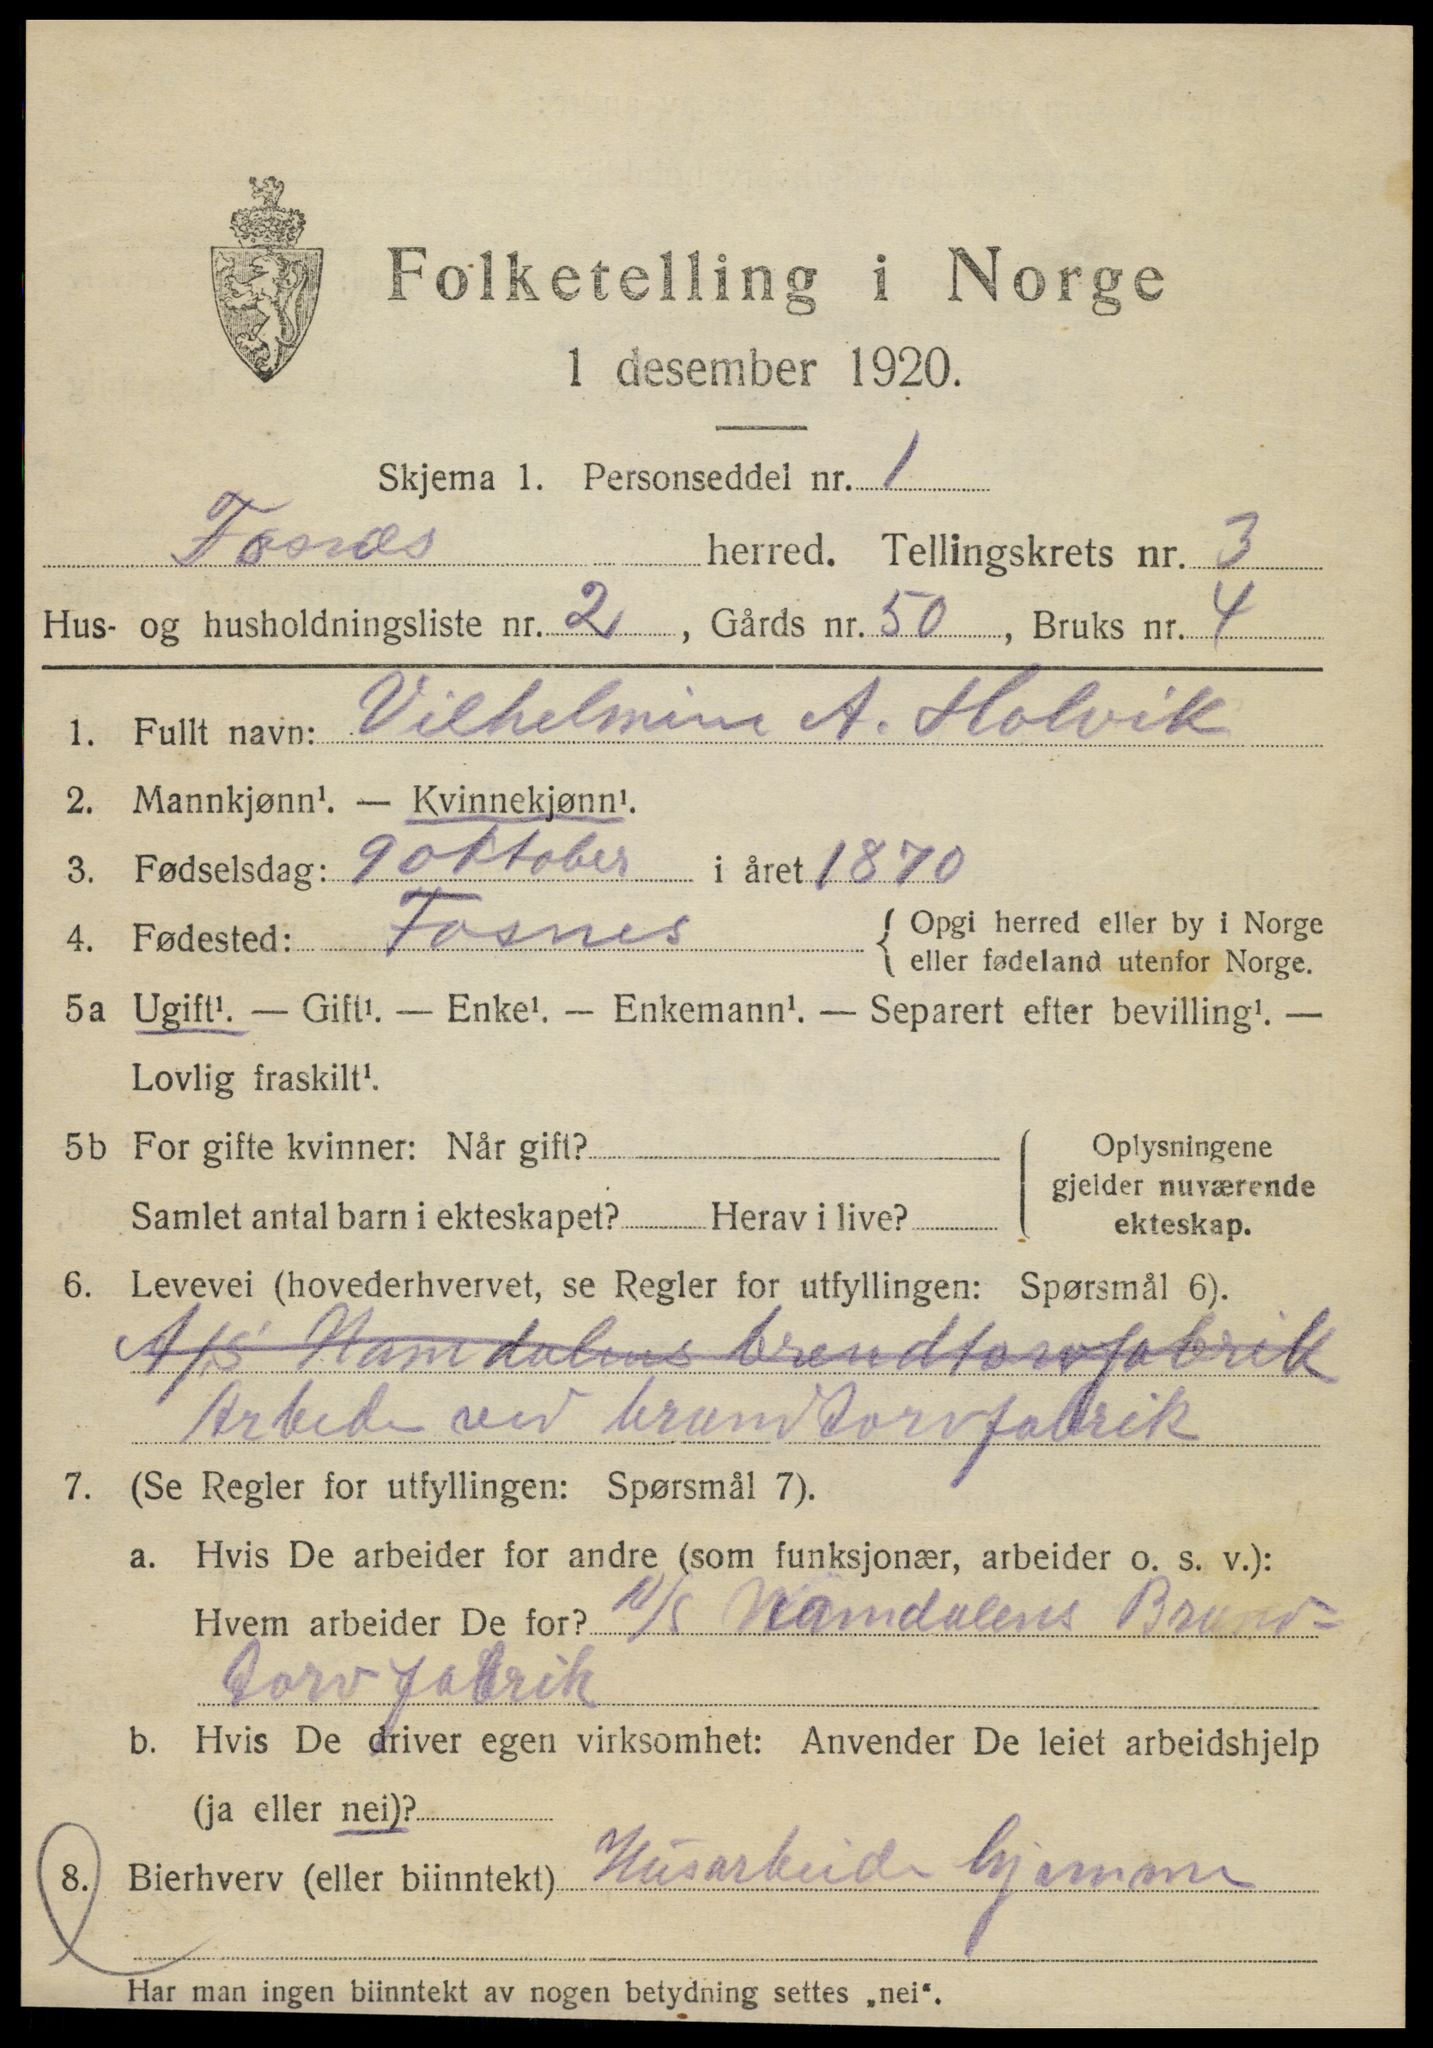 Folketelling i Norge
1 desember 1920.
Skjema 1. Personseddel nr. 1
Fosnes herred. Tellingskrets nr. 3
Hus- og husholdningsliste nr. 2, Gårds nr. 50, Bruks nr. 4
1. Fullt navn: Vilhelmine A. Holvik
2. Mannkjønn¹. — Kvinnekjønn¹.
3. Fødselsdag: 9 oktober i året 1870
4. Fødested: Fosnes { Opgi herred eller by i Norge
eller fødeland utenfor Norge.
5a Ugift¹. — Gift¹. — Enke¹. — Enkemann¹. — Separert efter bevilling¹. —
Lovlig fraskilt¹.
5b For gifte kvinner: Når gift? Oplysningene
gjelder nuværende
Samlet antal barn i ekteskapet? Herav i live? ekteskap.
6. Levevei (hovederhvervet, se Regler for utfyllingen: Spørsmål 6).
A/S Namdalens brendtorvfabrik
Arbeide ved brændtorvfabrik
7. (Se Regler for utfyllingen: Spørsmål 7).
a. Hvis De arbeider for andre (som funksjonær, arbeider o. s. v.):
Hvem arbeider De for? A/S Namdalens Brænd-
torvfabrik
b. Hvis De driver egen virksomhet: Anvender De leiet arbeidshjelp
(ja eller nei)?
8. Bierhverv (eller biinntekt) Husarbeide hjemme
Har man ingen biinntekt av nogen betydning settes „nei“.